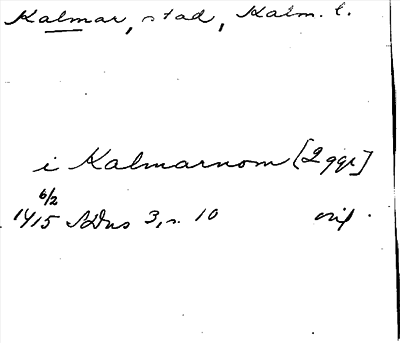 Kalmar, stad, Kalm. l.
i Kalmarnom [2 ggr]
6/2
1415 SDns 3, s. 10 orig.